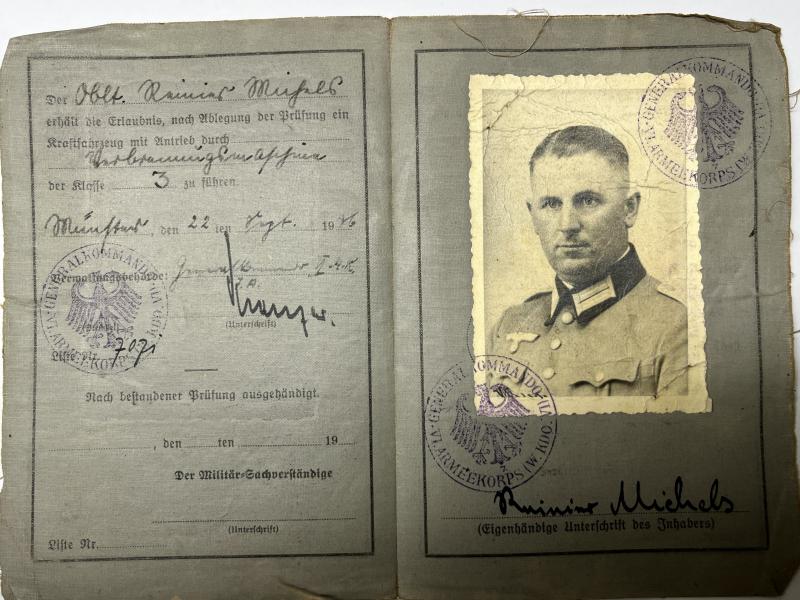 Der Oblt. Reinier Michels
erhält die Erlaubnis, nach Ablegung der Prüfung ein
Kraftfahrzeug mit Antrieb durch
Verbrennungsmaschine
der Klasse 3 zu führen.
Münster, den 22 ten Sept. 19
Verwaltungsbehörde: Generalkommando
(Unterschrift)
Liste Nr. 7071
Nach bestandener Prüfung ausgehändigt.
, den ten 19
Der Militär-Sachverständige
(Unterschrift)
Liste Nr.
GENERALKOMMANDO
VI. ARMEEKORPS (W. KDO. VI)
GENERALKOMMANDO
VI. ARMEEKORPS (W. KDO. VI)
GENERALKOMMANDO
VI. ARMEEKORPS (W. KDO. VI)
Reinier Michels
(Eigenhändige Unterschrift des Inhabers)